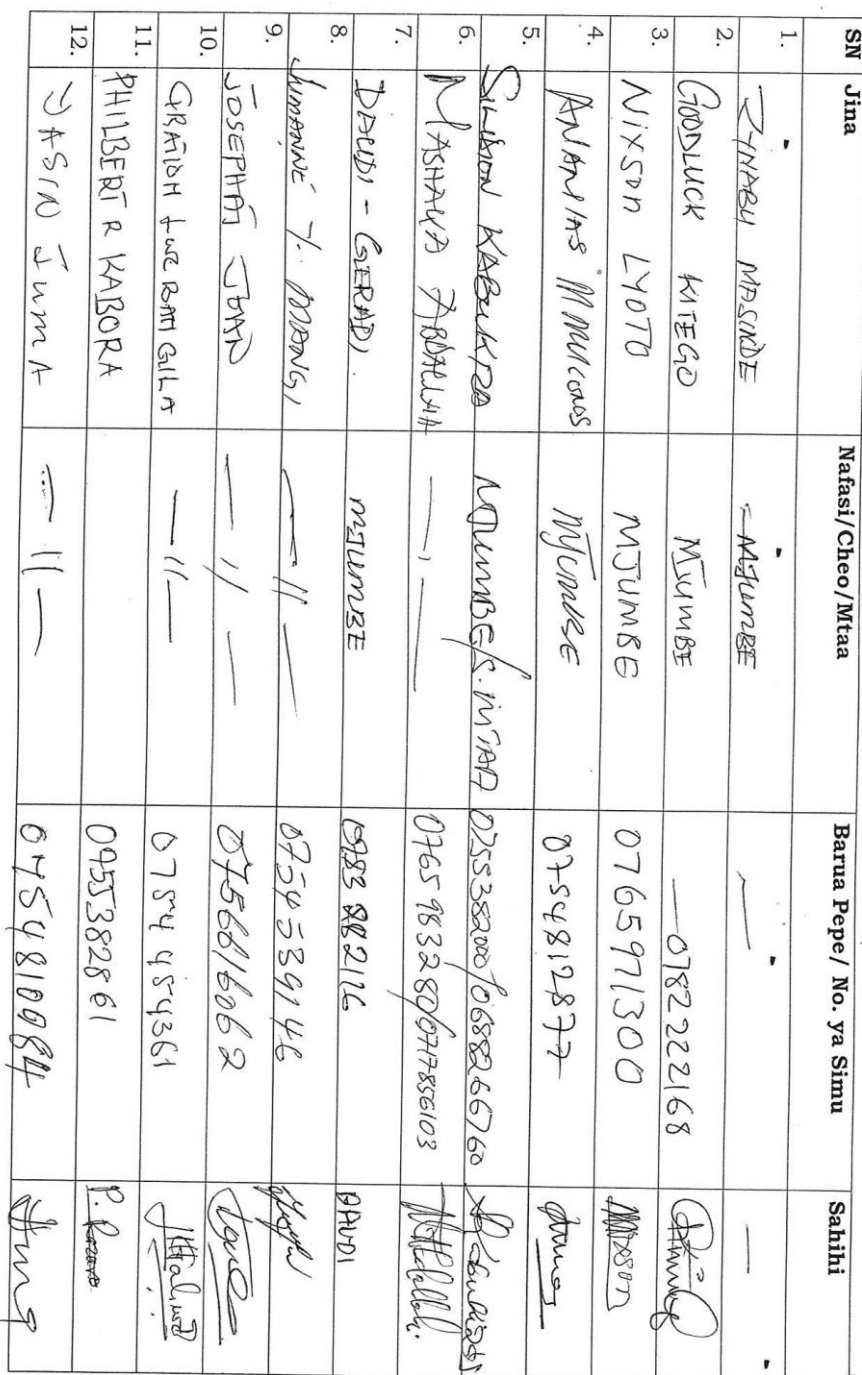 SN Jina Nafasi/Cheo/Mtaa Barua Pepe/ No. ya Simu Sahihi
1. ZYNABU MASINDE MJUMBE —
2. GOODLUCK KITEGO MJUMBE 0782222168
3. NIXSON LYOTO MJUMBE 0765971300 Nixson
4. ANANIAS MJUMBE 0754812877
5. KABUKIZA MJUMBE/S.MTAA 0755382000/0688266760
6. MASHAKA ABDALLAH —,— 0765983280/0717856103
7. DAUDI - GERADI MJUMBE DAUDI
8. JUMANNE Y. MANGI —11—
9. JOSEPHAT JOAN —11— 0756616062
10. GRATION —11— 0754454361
11. PHILBERT R KABORA 0755382861 P.
12. YASIN JUMA —11—